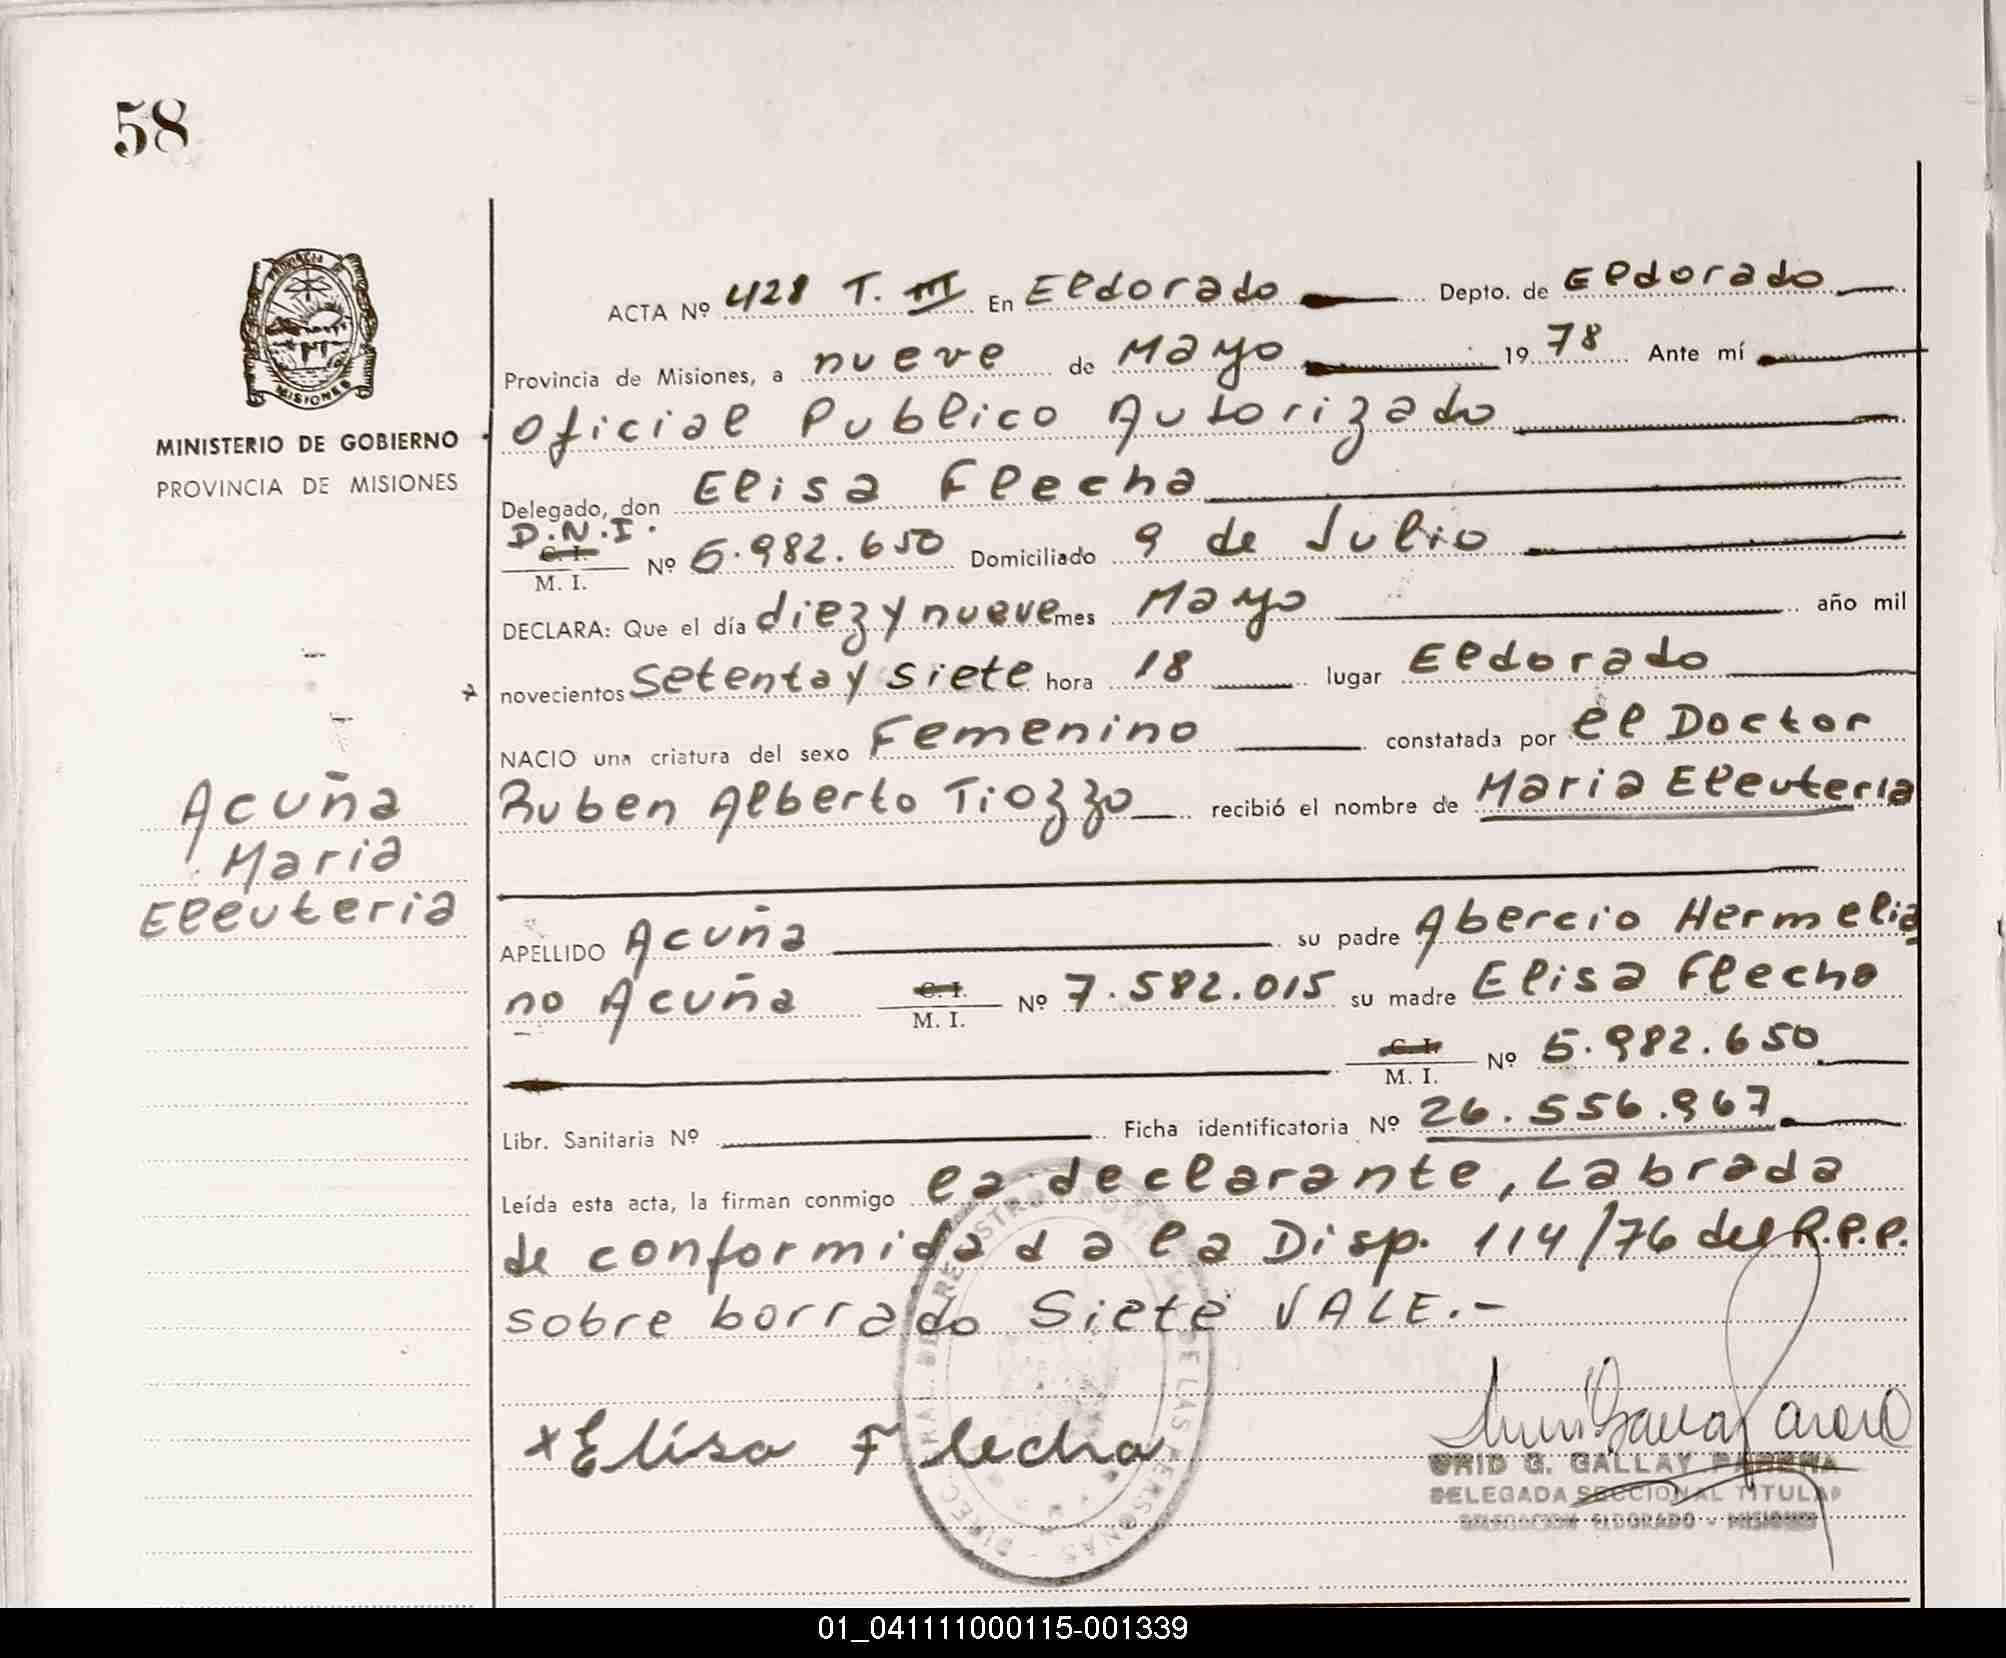 58
PROVINCIA DE
MISIONES
MINISTERIO DE GOBIERNO
PROVINCIA DE MISIONES
Acuña
Maria
Eleuteria
ACTA Nº 428 T. III En Eldorado Depto. de Eldorado
Provincia de Misiones, a nueve de Mayo 1978 Ante mí
Oficial Publico Autorizado
Delegado, don Elisa Flecha
D.N.I.
C. I.
M. I. Nº 5.982.650 Domiciliado 9 de Julio
DECLARA: Que el día diez y nueve mes Mayo año mil
novecientos setenta y siete hora 18 lugar Eldorado
NACIO una criatura del sexo Femenino constatada por el Doctor
Ruben Alberto Tiozzo recibió el nombre de Maria Eleuteria
APELLIDO Acuña su padre Abercio Hermelia
no Acuña C. I. M. I. Nº 7.582.015 su madre Elisa Flecha
C. I. M. I. Nº 5.982.650
Libr. Sanitaria Nº Ficha identificatoria Nº 26.556.967
Leída esta acta, la firman conmigo la declarante, Labrada
de conformidad a la Disp. 114/76 del R.P.P.
sobre borrado Siete VALE.-
x Elisa Flecha
G. GALLAY PARERA
DELEGADA SECCIONAL TITULAR
DELEGACION ELDORADO - MISIONES
01_041111000115-001339